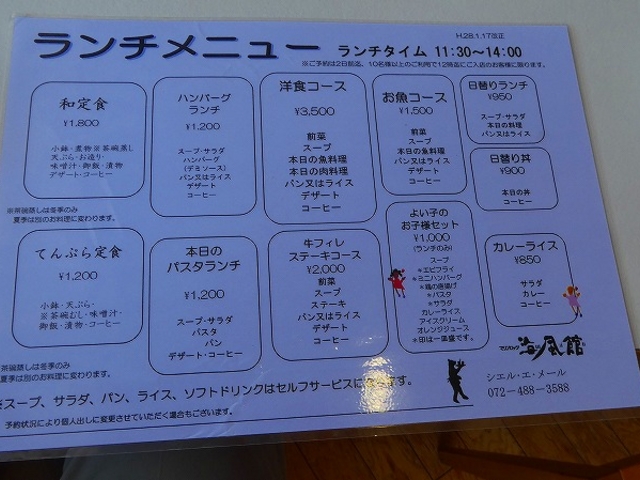 H.28.1.17改正
ランチメニュー
ランチタイム 11:30~14:00
※ご予約は2日前迄、10名様以上のご利用で12時迄にご入店のお客様に限ります。
和定食
¥1,800
小鉢・煮物※茶碗蒸し
天ぷら・お造り・
味噌汁・御飯・漬物
デザート・コーヒー
※茶碗蒸しは冬季のみ
夏季は別のお料理に変わります。
ハンバーグ
ランチ
¥1,200
スープ・サラダ
ハンバーグ
(デミソース)
パン又はライス
デザート
コーヒー
洋食コース
¥3,500
前菜
スープ
本日の魚料理
本日の肉料理
パン又はライス
デザート
コーヒー
お魚コース
¥1,500
前菜
スープ
本日の魚料理
パン又はライス
デザート
コーヒー
日替りランチ
¥950
スープ・サラダ
本日の料理
パン又はライス
日替り丼
¥900
本日の丼
コーヒー
てんぷら定食
¥1,200
小鉢・天ぷら・
※茶碗むし・味噌汁・
御飯・漬物・コーヒー
茶碗蒸しは冬季のみ
夏季は別のお料理に変わります。
本日の
パスタランチ
¥1,200
スープ・サラダ
パスタ
パン
デザート・コーヒー
牛フィレ
ステーキコース
¥2,000
前菜
スープ
ステーキ
パン又はライス
デザート
コーヒー
よい子の
お子様セット
¥1,000
(ランチのみ)
スープ
*エビフライ
*ミニハンバーグ
*鶏の唐揚げ
*パスタ
*サラダ
カレーライス
アイスクリーム
オレンジジュース
*印は一皿盛です。
カレーライス
¥850
サラダ
カレー
コーヒー
海風館
シエル・エ・メール
072-488-3588
※スープ、サラダ、パン、ライス、ソフトドリンクはセルフサービスになります。
予約状況により個人出しに変更させていただく場合もございます。